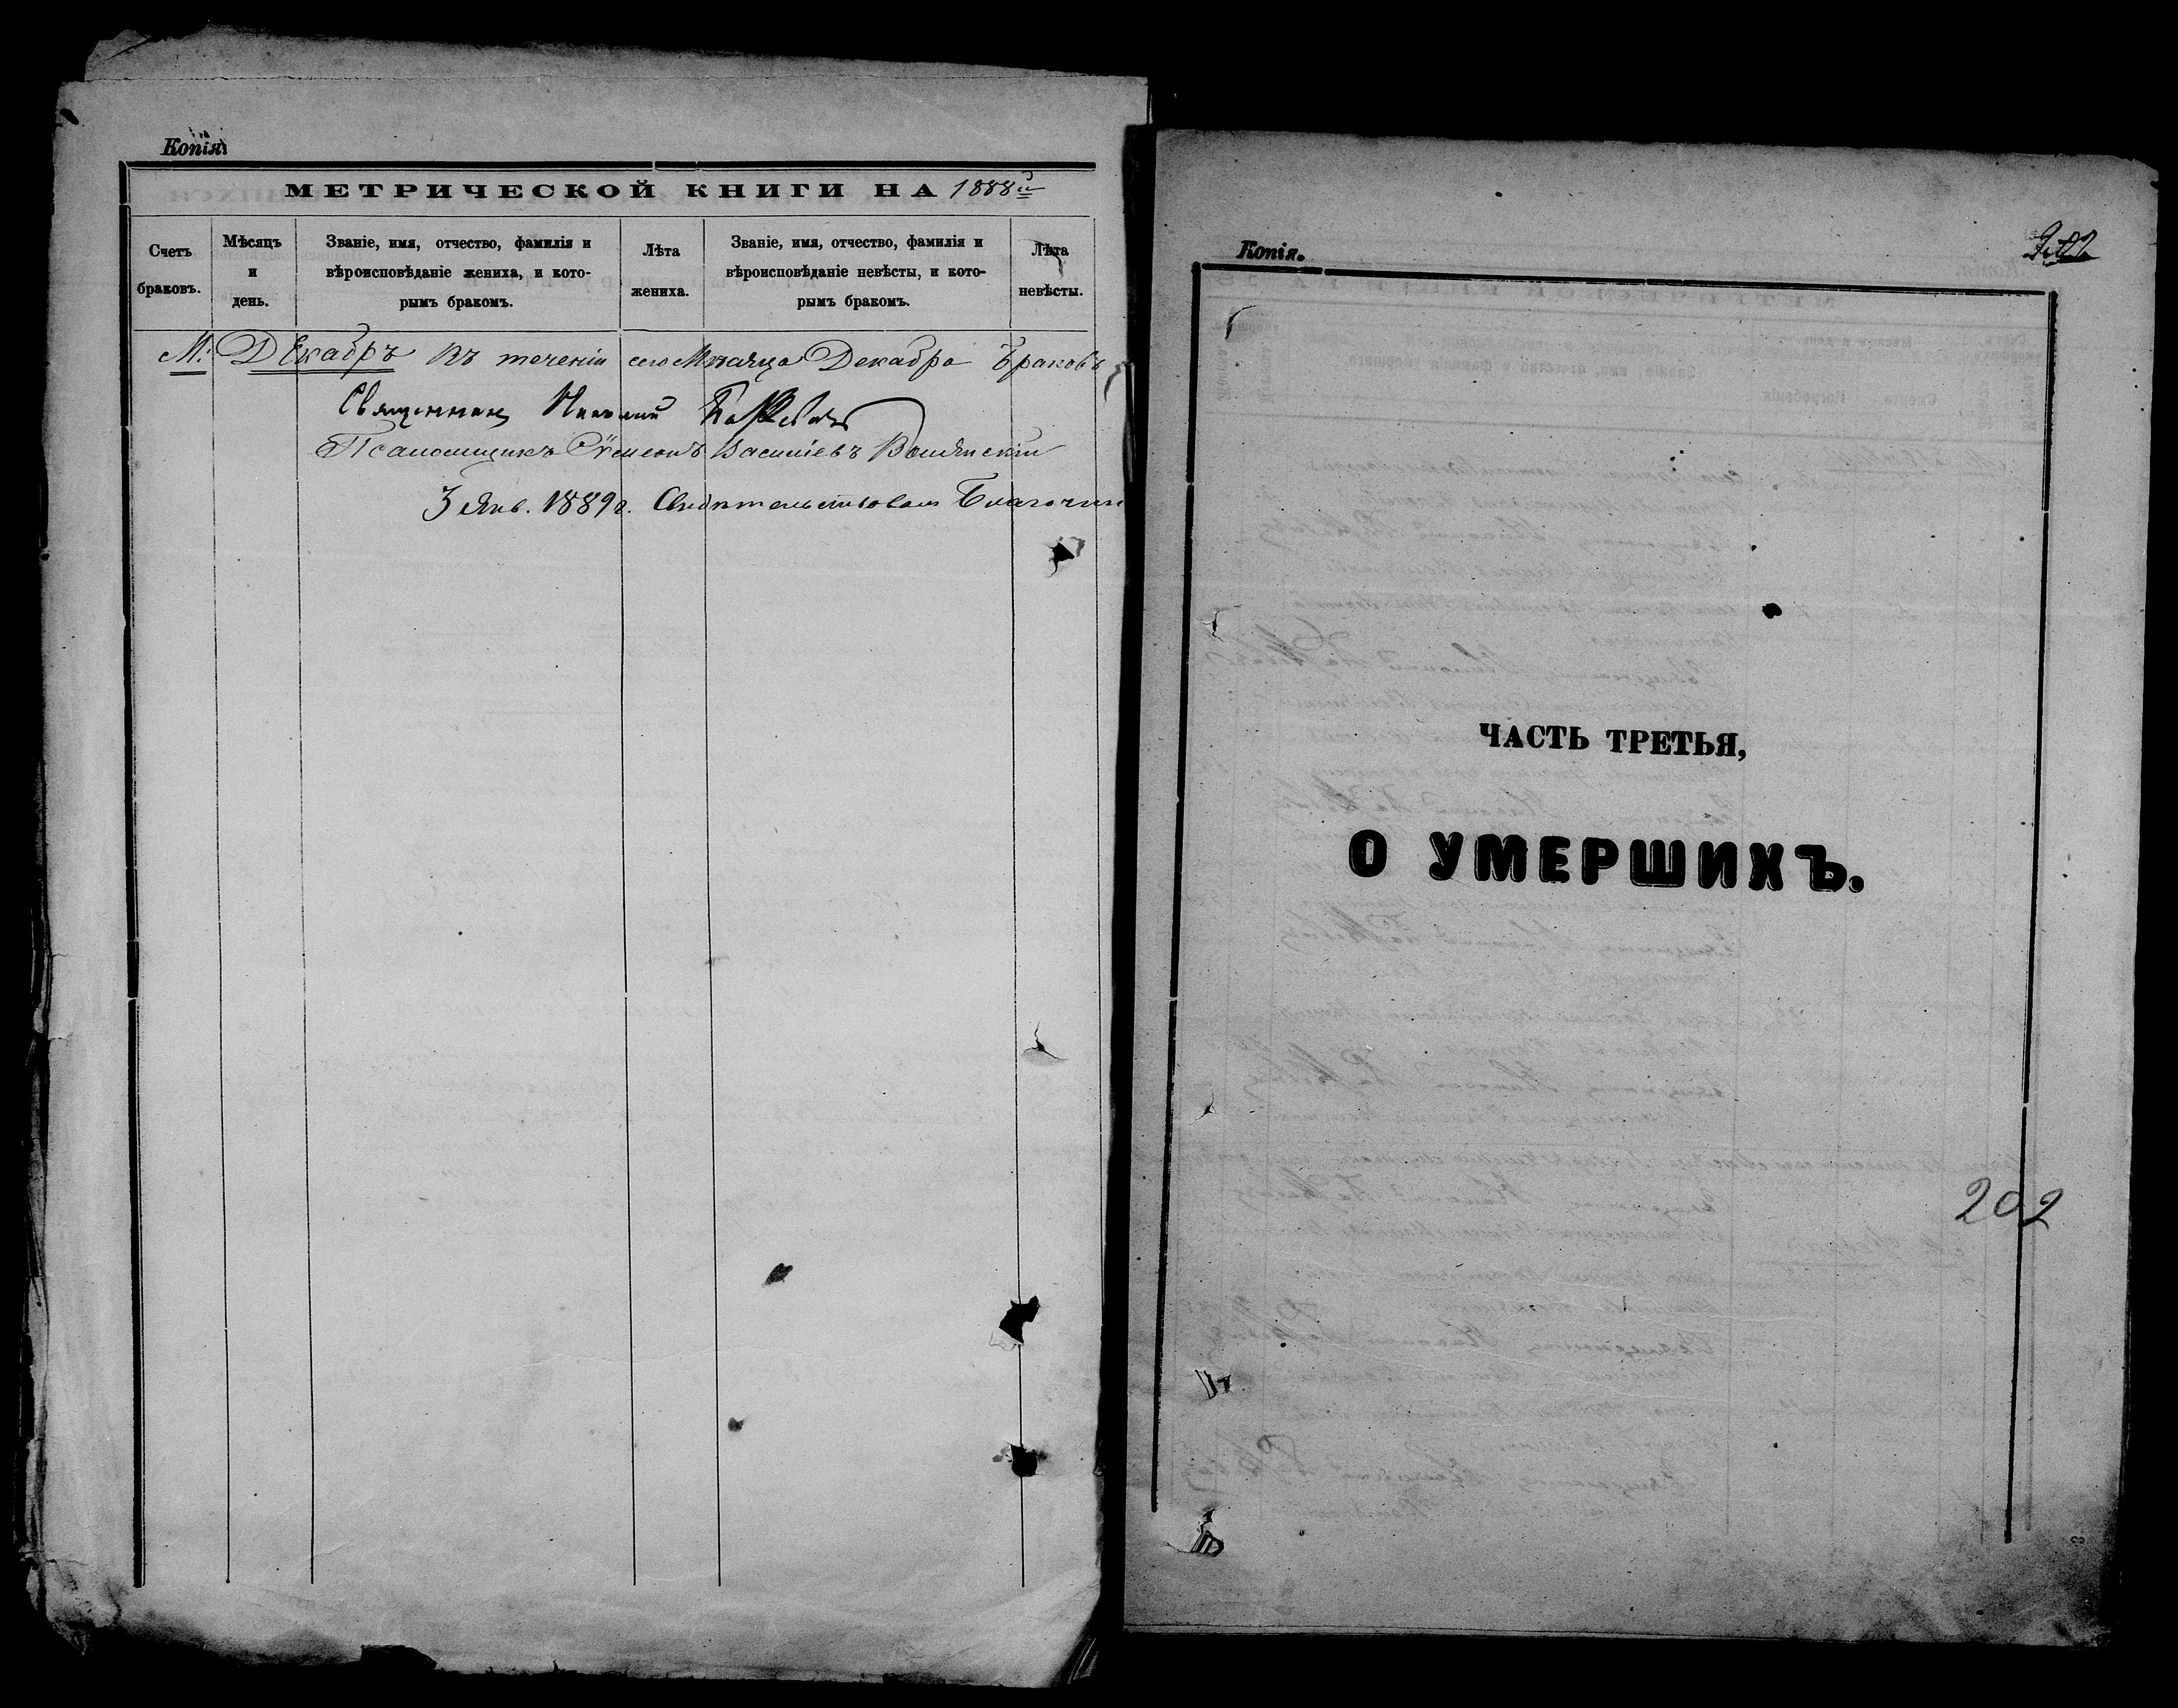 Копія
МЕТРИЧЕСКОЙ КНИГИ НА 1888й
Счетъ браковъ.
Мѣсяцъ и день.
Званіе, имя, отчество, фамилія и вѣроисповѣданіе жениха, и кото-рымъ бракомъ.
Лѣта жениха.
Званіе, имя, отчество, фамилія и вѣроисповѣданіе невѣсты, и кото-рымъ бракомъ.
Лѣта невѣсты.
М: Декабрь Въ теченіи сего Мѣсяца Декабря Браковъ
Священникъ Николай
Псаломщикъ Сѵмеонъ Васильевъ
3 Янв. 1889 г. Свидѣтельствовалъ Благочин
Копія.
202
ЧАСТЬ ТРЕТЬЯ,
О УМЕРШИХЪ.
202